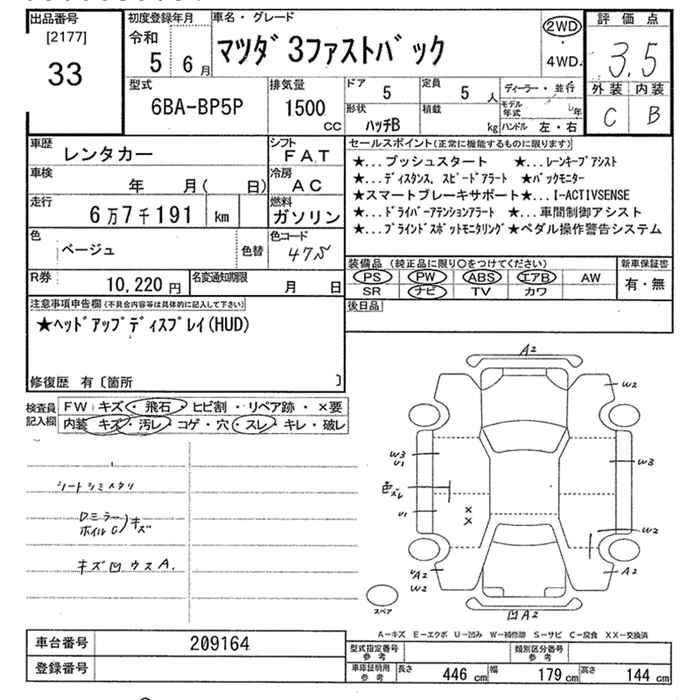 出品番号
[2177]
33
初度登録年月
令和
5 6月
車名・グレード
マツダ3ファストバック
2WD
・
4WD
評価点
3.5
外装 内装
C B
型式
6BA-BP5P
排気量
1500
CC
ドア
5
定員
5 人
形状
ハッチB
積載
kg
ディーラー・並行
モデル年式 年
ハンドル 左・右
車歴
レンタカー
シフト
FAT
車検
年 月( 日)
冷房
AC
走行
6万7千191 km
燃料
ガソリン
色
ベージュ
色替
色コード
47S
R券
10,220円
名変通知期限
月 日
セールスポイント(正常に機能するものに限ります)
★...プッシュスタート ★...レーンキープアシスト
★...ディスタンス、スピードアラート ★バックモニター
★スマートブレーキサポート★...I-ACTIVSENSE
★...ドライバーアテンションアラート ★...車間制御アシスト
★...ブラインドスポットモニタリング★ペダル操作警告システム
装備品(純正品に限り○をつけてください)
新車保証書
PS PW ABS エアB AW
SR ナビ TV カワ
有・無
後日品
注意事項申告欄(不具合内容等は具体的に記入して下さい)
★ヘッドアップディスプレイ(HUD)
修復歴 有〔箇所 〕
検査員記入欄
FW キズ・飛石・ヒビ割・リペア跡・×要
内装 キズ・汚レ・コゲ・穴・スレ・キレ・破レ
シートシミスクリ
Dミラー
ホイルG)キズ
キズ凹ウスA.
A2
W2
W3
U1
W3
色スレ
U1
×
×
W2
UA2
W2
A2
凹A2
スペア
A-キズ E-エクボ U-凹み W-補修跡 S-サビ C-腐食 XX-交換済
車台番号 209164
登録番号
型式指定番号参考
類別区分番号参考
車庫証明用参考
長さ 446 cm 幅 179 cm 高さ 144 cm